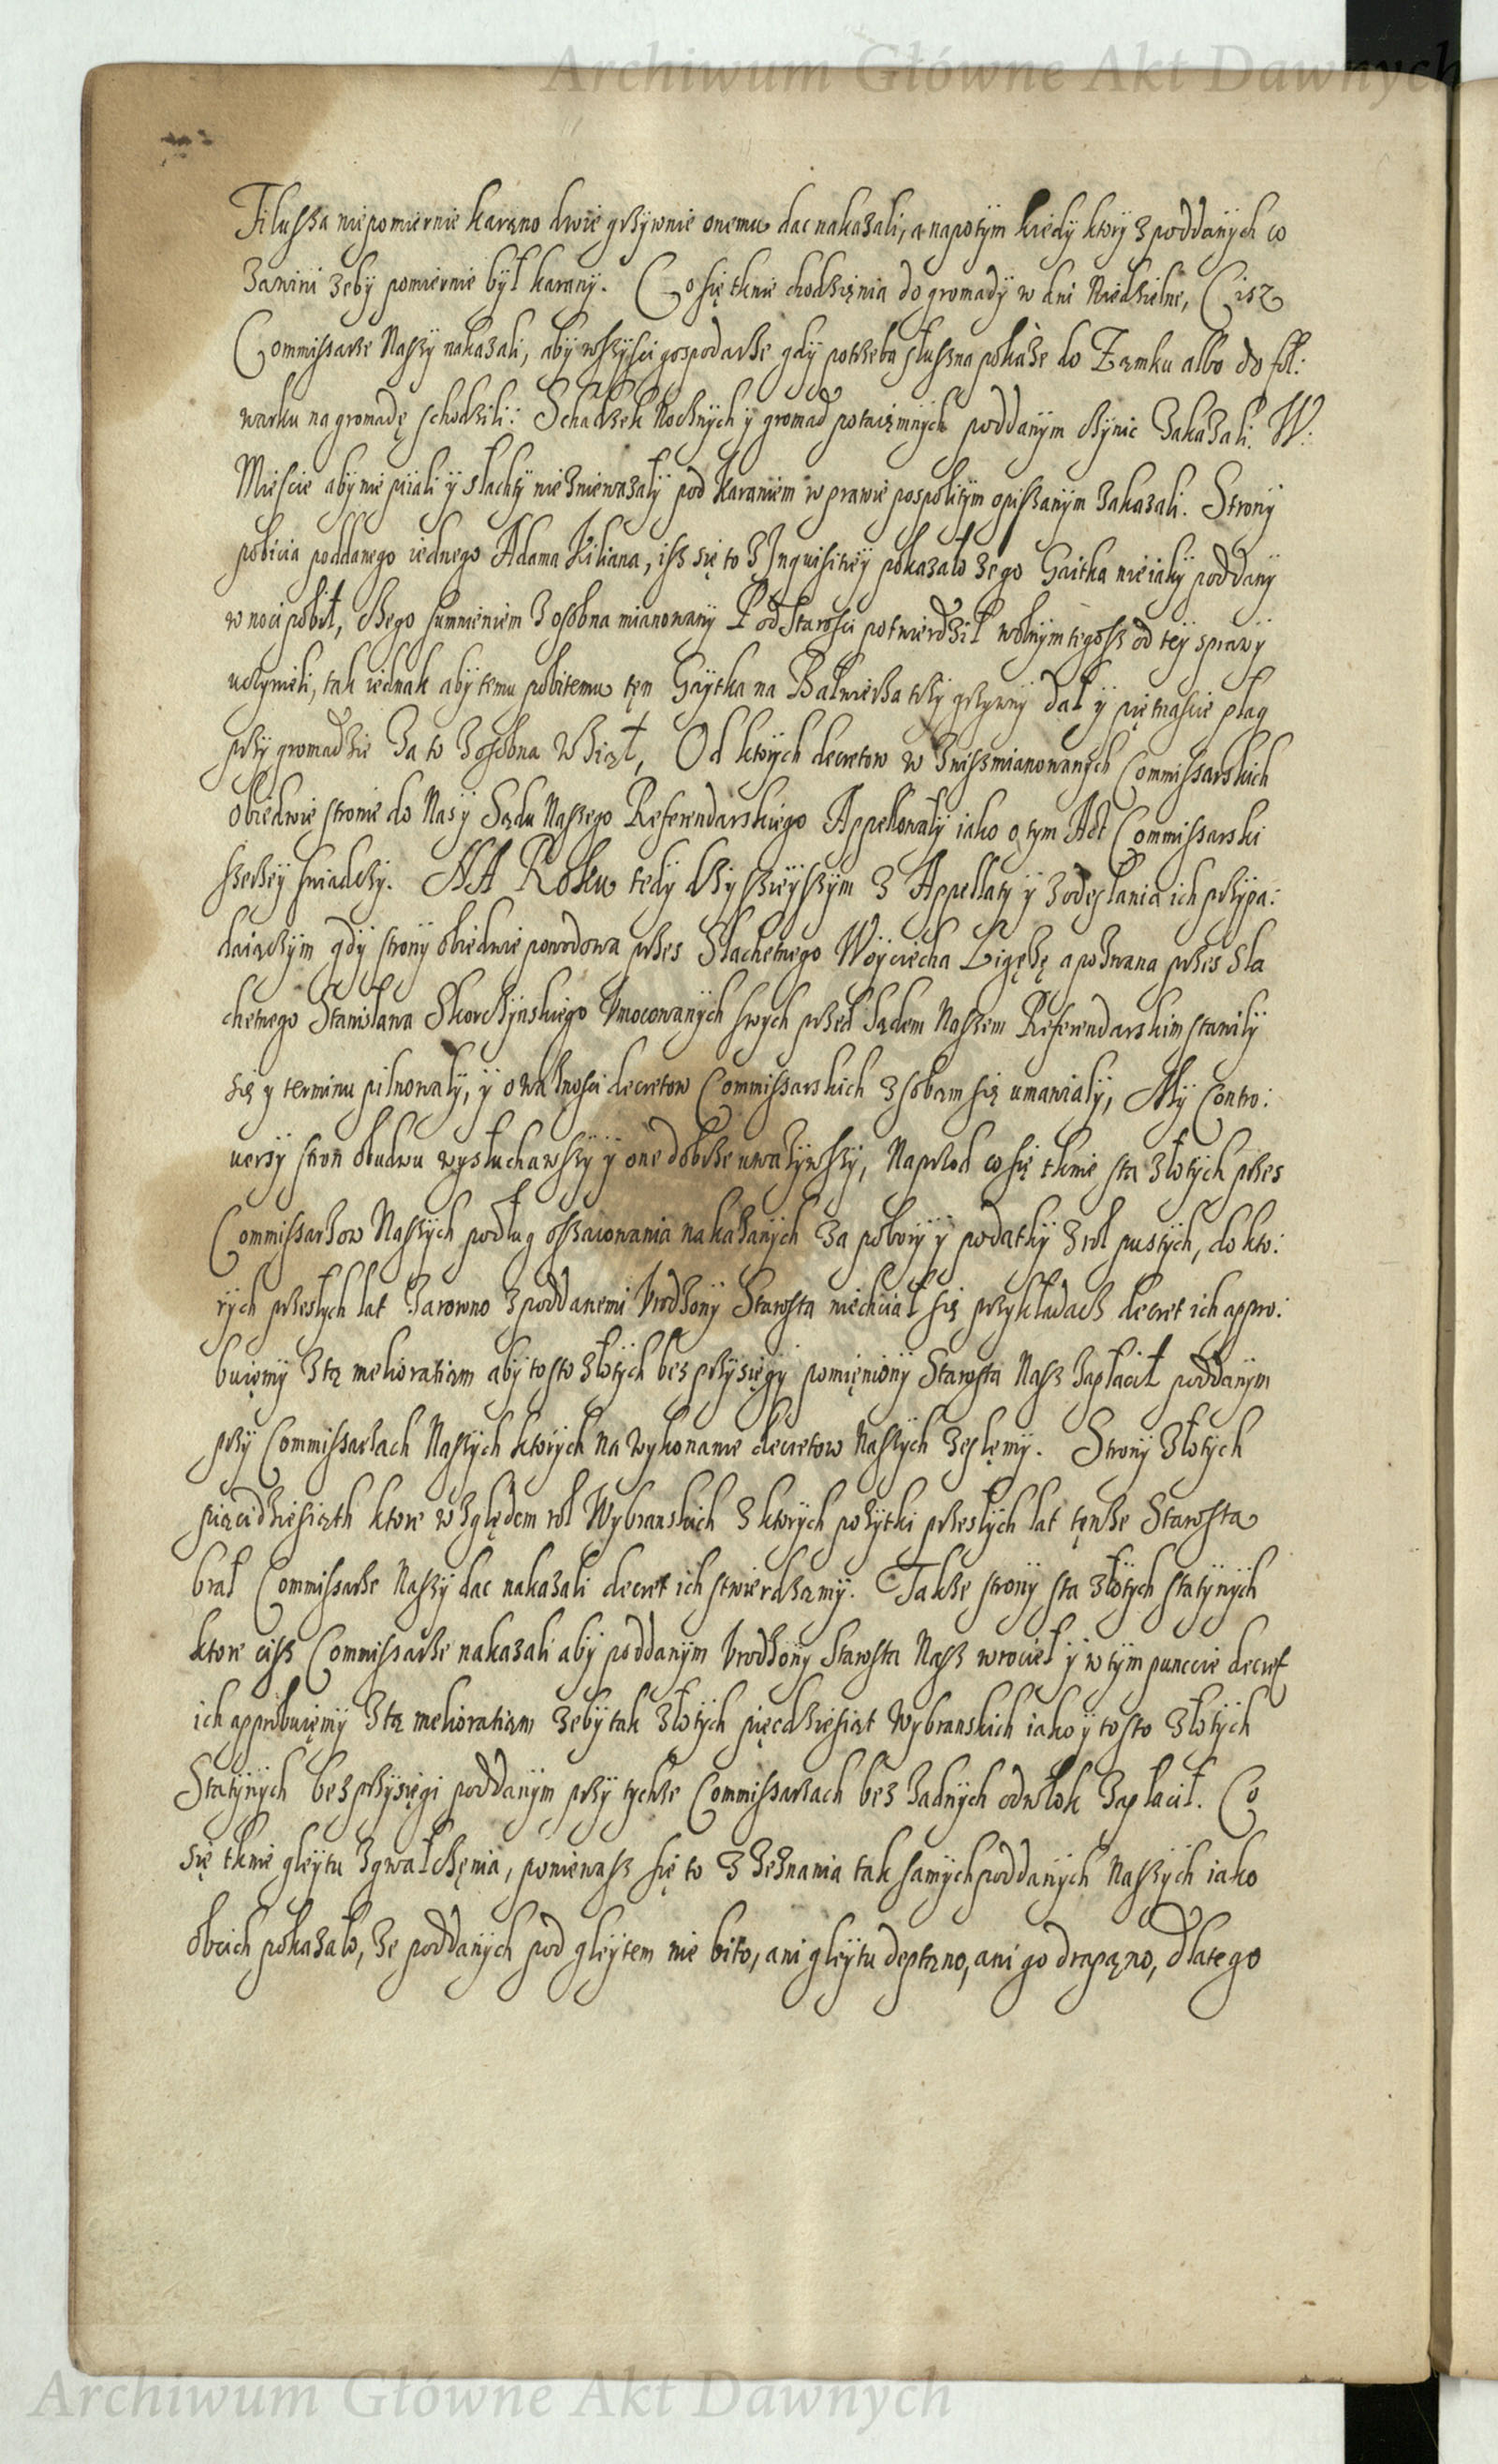 Archiwum Główne Akt Dawnych
Filussa niepomiernie karąno dwie grzywnie onemu dac nakazali, a napotym kiedy ktory z poddanych co
zawini zeby pomiernie był karany. Co się tknie chodzięnia do gromady w dni Niedzielne, Cisz
Commissarze Naszy nakazali, aby wszysci gospodarze gdy potrzeba słuszna pokaże do Ząmku albo do fol:
warku na gromadę schodzili: Schadzek Nocnych y gromad potaięmnych poddanym czynic zakazali. W:
Miescie aby nie piiali y slachty nie zniewazaly pod karaniem w prawie pospolitym opisanym zakazali. Strony
pobicia poddanego iednego Adama Kiliana, isz się to z Inquisitiey pokazało ze go Gaitka nieiaky poddany
w nocy pobił, czego sumnieniem z osobna mianowany Podstarosci potwierdził wolnym tegosz od tey sprawy
uczynieli, tak iednak aby temu pobitemu tęn Gaytka na Balwierza trzy grzywny dał y piętnascie plag
przy gromadzie za to z osobna wziął, Od ktorych decretow w zwisz mianowanych Commissarskich
obiedwie stronie do Nas y Sądu Naszego Referendarskiego Appellowały iako o tym Act Commissarski
szerzey swiadczy. NA Roku tedy dzysieyszym z Appellaty y z odesłania ich przypa:
daiączym gdy strony obiedwie powodowa przes Slachetnego Woyciecha Ligęzę a pozwana przes Sla
chetnego Stanisława Skorczynskiego Umocowanych swych przed Sądem Naszem Referendarskim stawiły
się y terminu pilnowały, y o ważnosci decretow Commissarskich z sobąm się umawiały, My Contro:
uersy stron obudwu wysłuchawszy y one dobrze uważywszy, Naprzod co się tknie sta złotych przes
Commissarzow Naszych podług oszacowania nakazanych za pobory y podatky z rol pustych, do kto:
rych przeszłych lat zarowno z poddanemi Urodzony Starosta niechciał się przykładacz decret ich appro:
buięmy z tą melioratiąm aby to sto złotych bes przysięgy pomięniony Starosta Nasz zapłacił poddanym
przy Commissarzach Naszych ktorych na wykonanie decretow Naszych zeslęmy. Strony złotych
pięcidziesiąth ktore względem rol Wybranskich z ktorych pożytki przeszlych lat tęnże Starosta
brał Commissarze Naszy dac nakazali decret ich stwierdzamy. Także strony sta złotych statynych
ktore cisz Commissarze nakazali aby poddanym Urodzony Starosta Nasz wrocieł y w tym punccie decret
ich approbuięmy z tą melioratiąm zeby tak złotych pięcdziesiąt Wybranskich iako y to sto złotych
Statynych bez przysięgi poddanym przy tychże Commissarzach bez żadnych odwłok zapłacił. Co
się tknie gleytu zgwałczęnia, poniewasz się to z zeznania tak samych poddanych Naszych iako
obcich pokazało, że poddanych pod gleytem nie bito, ani gleytu deptąno, ani go drapąno, dlatego
Archiwum Główne Akt Dawnych